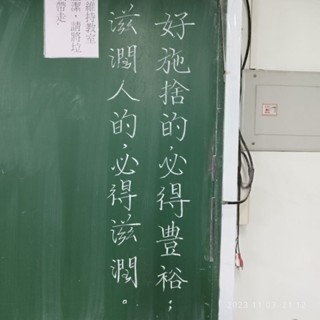 好施捨的，必得豐裕；
滋潤人的，必得滋潤。
維持教室
潔，請將垃
帶走，